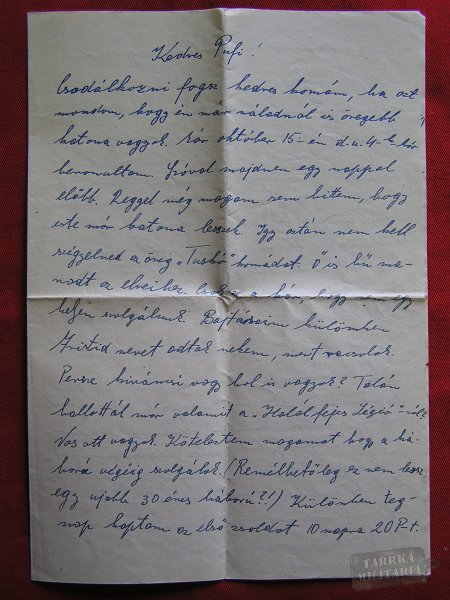 Kedves Pufi!
Csodálkozni fogsz kedves komám, ha azt
mondom, hogy én már náladnál is öregebb
katona vagyok. Már október 15-én d.u. 4-kor
bevonultam. Szóval majdnem egy nappal
előbb. Reggel még magam sem hittem, hogy
este már katona leszek. Igy aztán nem kell
szégyelned az öreg „Tuskó" komádat. Ő is hű ma-
radt az elveihez. Csak az a kár, hogy nem egy
helyen szolgálunk. Bajtársaim külömben
Arisztid nevet adtak nekem, mert
Persze kiváncsi vagy hol is vagyok? Talán
hallottál már valamit a „Halálfejes Légió"-ról?
Nos ott vagyok. Köteleztem magamat hogy a há-
ború végéig szolgálok. (Remélhetőleg ez nem lesz
egy ujabb 30 éves háború?!) Külömben teg-
nap kaptam az első zsoldot 10 napra 20 P-t.
TARRKA
MILITARIA